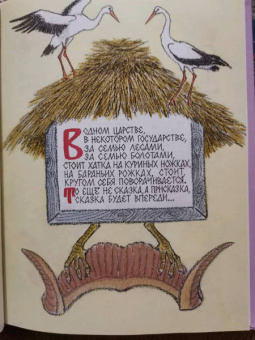 В одном царстве,
в некотором государстве,
за семью лесами,
за семью болотами,
стоит хатка на куриных ножках,
на бараньих рожках, стоит,
кругом себя поворачивается.
То ещё не сказка, а присказка,
сказка будет впереди...